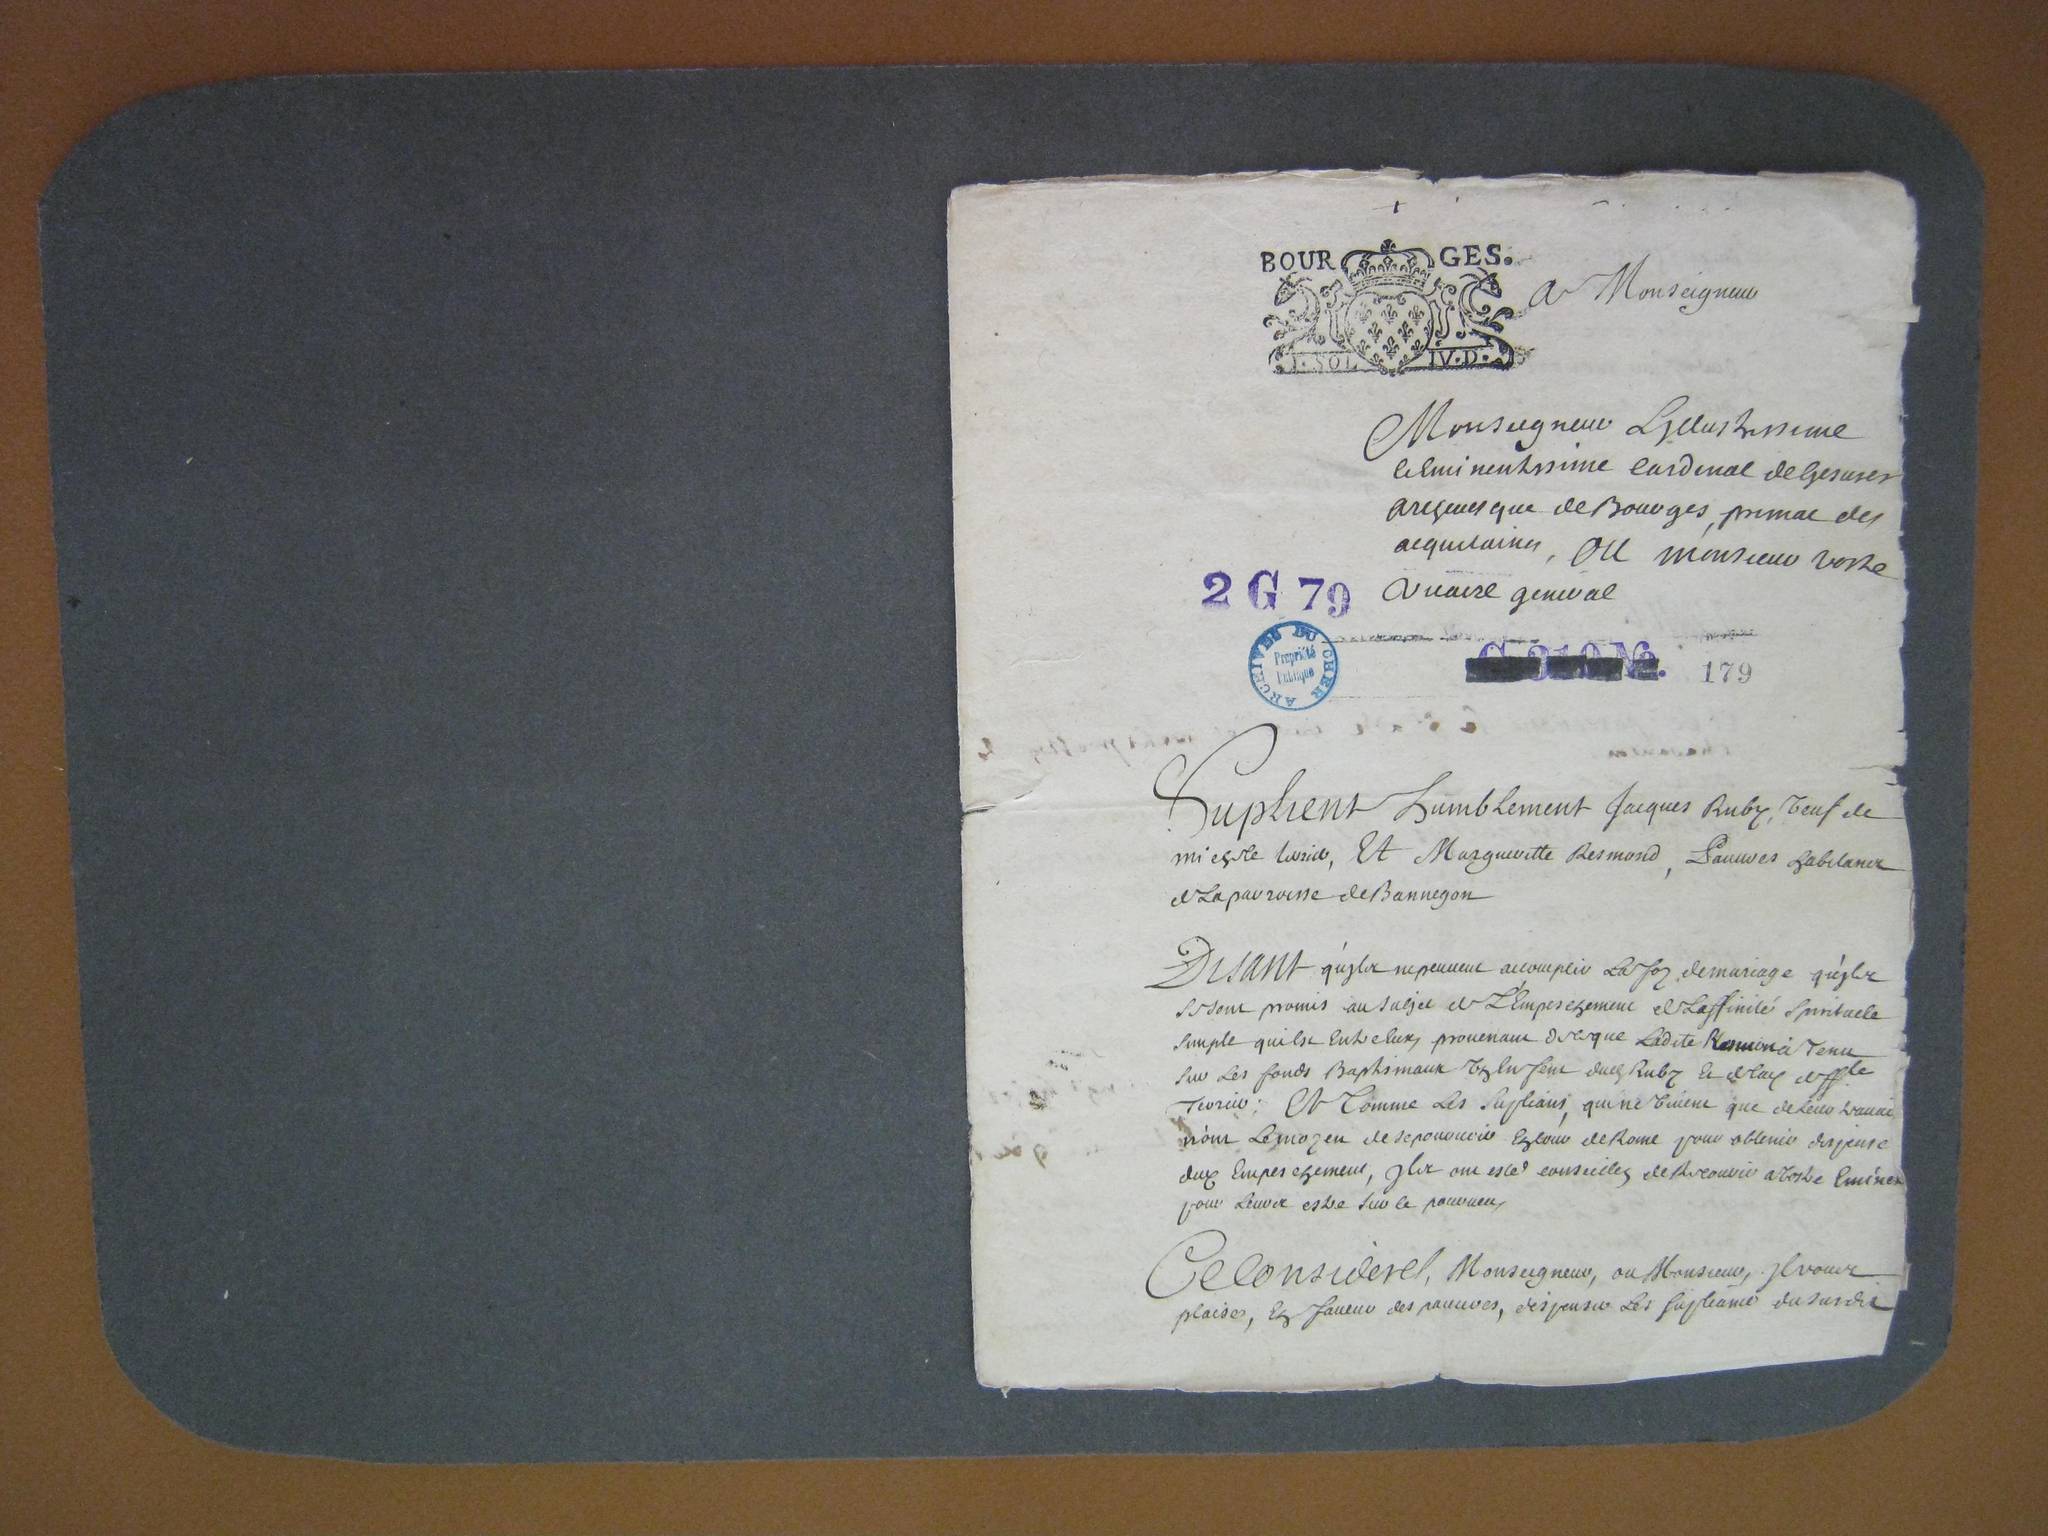 BOURGES.
I. SOL IV. D.
A Monseigneur
Monseigneur Lillustrissime
Eminentissime Cardinal de Gesures
archeuesque de Bourges, primat des
acquitaines, OU monsieur vostre
vicaire general
2 G 79
ARCHIVES DU CHER
Propriété
Publique
179
Suplient humblement Jacques Ruby, veuf de
michelle, Et Marguerite Resmond, Pauvres habitants
de La parroisse de Bannegon
Disant qu'ils ne peuuent accomplir La foy de mariage qu'ils
se sont promis au subjet de L'Empeschement de Laffinité spirituele
simple qui est Entre Eux, prouenant de ce que Ladite a tenu
sur Les fonds Baptismaux Un Enfent dud Ruby Et de lad deff
: Et Comme Les Suplians, qui ne viuent que de Leur trauail
n'ont Le moyen de se pouruoir En cour de Rome pour obtenir dispense
dud Empeschement, Ils ont esté conseillez de Recourir a Vostre Eminence
pour Leur estre sur ce pourueu,
Ce Consideré, Monseigneur, ou Monsieur, Il vous
plaise, En faueur des pauures, dispenser Les supliants du susdit